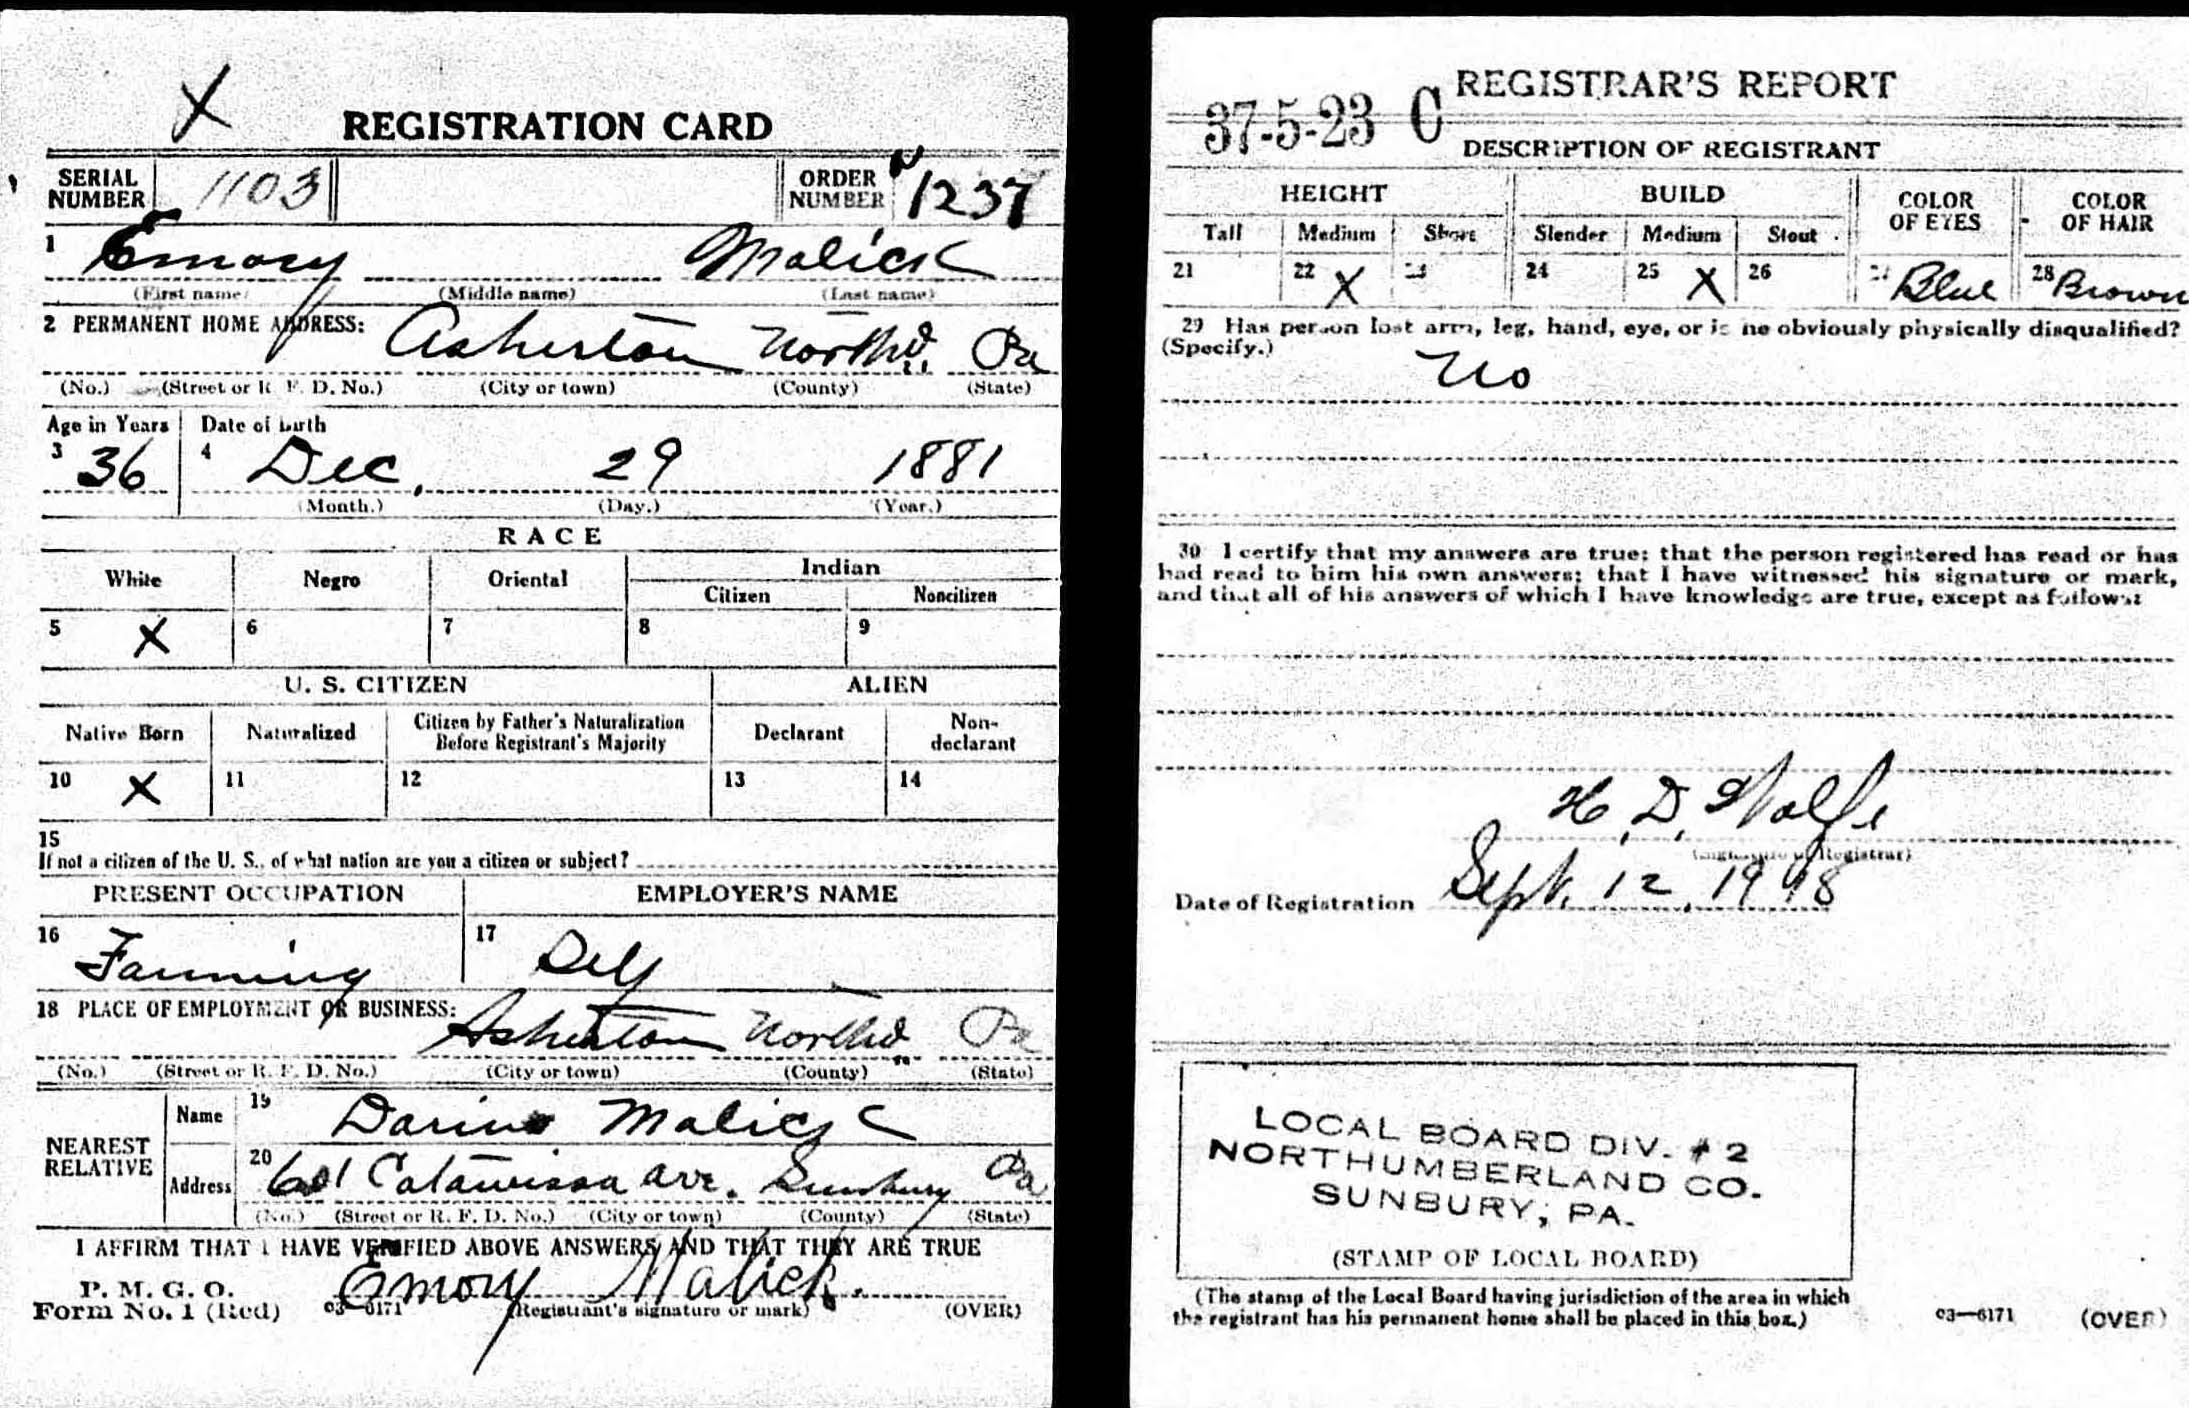 X
REGISTRATION CARD
SERIAL NUMBER 1103 ORDER NUMBER 1237
1 Emory Malick
(First name) (Middle name) (Last name)
2 PERMANENT HOME ADDRESS: Asherton North'd. Pa
(No.) (Street or R. F. D. No.) (City or town) (County) (State)
Age in Years Date of birth
3 36 4 Dec. 29 1881
(Month.) (Day.) (Year.)
RACE
White Negro Oriental Indian
Citizen Noncitizen
5 X 6 7 8 9
U. S. CITIZEN ALIEN
Native Born Naturalized Citizen by Father's Naturalization Before Registrant's Majority Declarant Non-declarant
10 X 11 12 13 14
15
If not a citizen of the U. S., of what nation are you a citizen or subject?
PRESENT OCCUPATION EMPLOYER'S NAME
16 Farming 17 Self
18 PLACE OF EMPLOYMENT OR BUSINESS:
Asherton North'd. Pa
(No.) (Street or R. F. D. No.) (City or town) (County) (State)
NEAREST RELATIVE
Name 19 Darius Malick
Address 20 601 Catawissa Ave. Sunbury Pa
(No.) (Street or R. F. D. No.) (City or town) (County) (State)
I AFFIRM THAT I HAVE VERIFIED ABOVE ANSWERS AND THAT THEY ARE TRUE
P. M. G. O.
Form No. 1 (Red) 03—6171 Emory Malick.
(Registrant's signature or mark) (OVER)
REGISTRAR'S REPORT
37-5-23 C
DESCRIPTION OF REGISTRANT
HEIGHT BUILD COLOR OF EYES COLOR OF HAIR
Tall Medium Short Slender Medium Stout
21 22 X 23 24 25 X 26 27 Blue 28 Brown
29 Has person lost arm, leg, hand, eye, or is he obviously physically disqualified?
(Specify.) No
30 I certify that my answers are true; that the person registered has read or has
had read to him his own answers; that I have witnessed his signature or mark,
and that all of his answers of which I have knowledge are true, except as follows:
H. D. Wolfe
(Signature of Registrar)
Date of Registration Sept. 12, 1918
LOCAL BOARD DIV. # 2
NORTHUMBERLAND CO.
SUNBURY, PA.
(STAMP OF LOCAL BOARD)
(The stamp of the Local Board having jurisdiction of the area in which
the registrant has his permanent home shall be placed in this box.)
03—6171 (OVER)